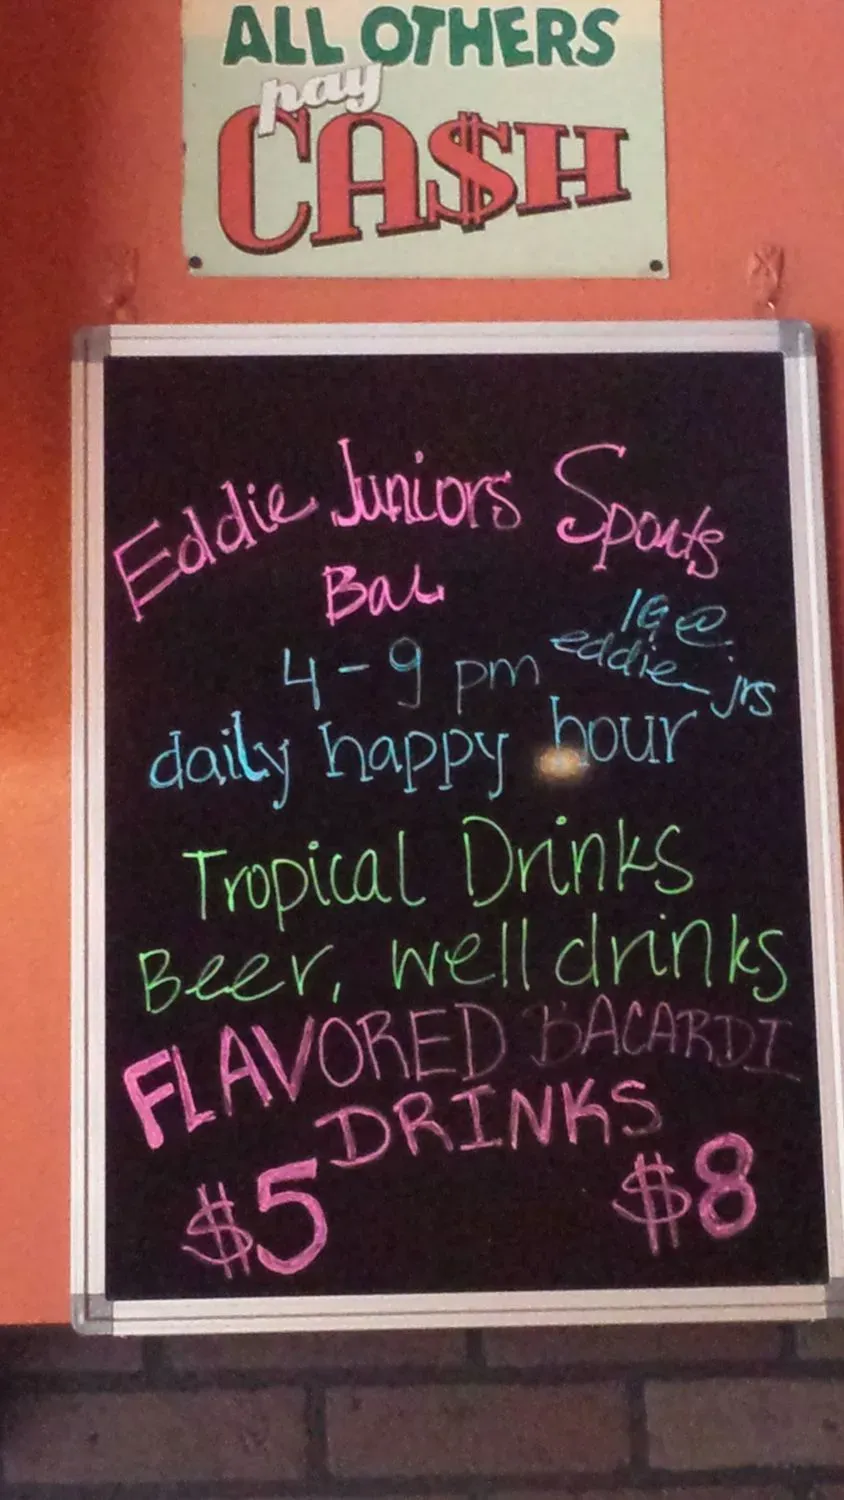 ALL OTHERS
pay
CA$H
Eddie Juniors Sports
Bar
IG @
eddie_jrs
4-9 pm
daily happy hour
Tropical Drinks
Beer, well drinks
FLAVORED BACARDI
DRINKS
$5 $8